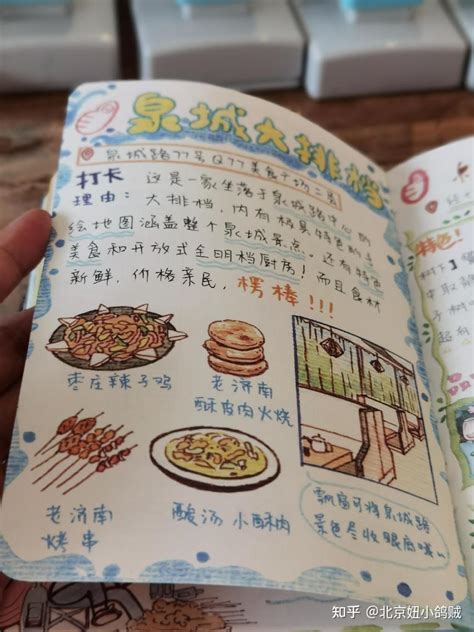 泉城大排档
泉城路77号Q77美食广场二层
打卡 这是一家坐落于泉城路中心的
理由: 大排档,内有极具特色的手
绘地图涵盖整个泉城景点。还有特色
美食和开放式全明档厨房!而且食材
新鲜,价格亲民,楞棒!!!
枣庄辣子鸡
老济南
酥皮肉火烧
老济南
烤串
酸汤小酥肉
飘窗可将泉城路
景色尽收眼底哦
特色!
树下】
中取
知乎 @北京妞小鸽贼